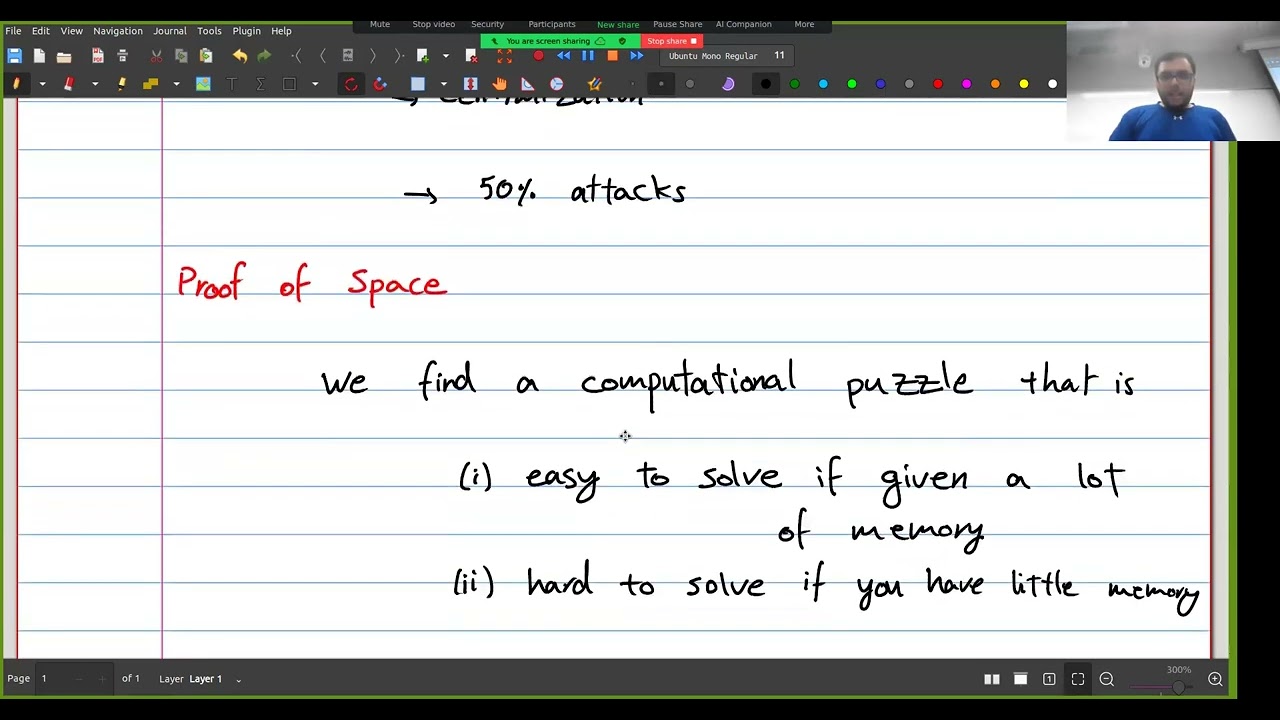 Mute Stop video Security Participants New share Pause Share AI Companion More
File Edit View Navigation Journal Tools Plugin Help
You are screen sharing Stop share
Ubuntu Mono Regular 11
→ 50% attacks
Proof of Space
We find a computational puzzle that is
(i) easy to solve if given a lot
of memory.
(ii) hard to solve if you have little memory
Page 1 of 1 Layer Layer 1 300%